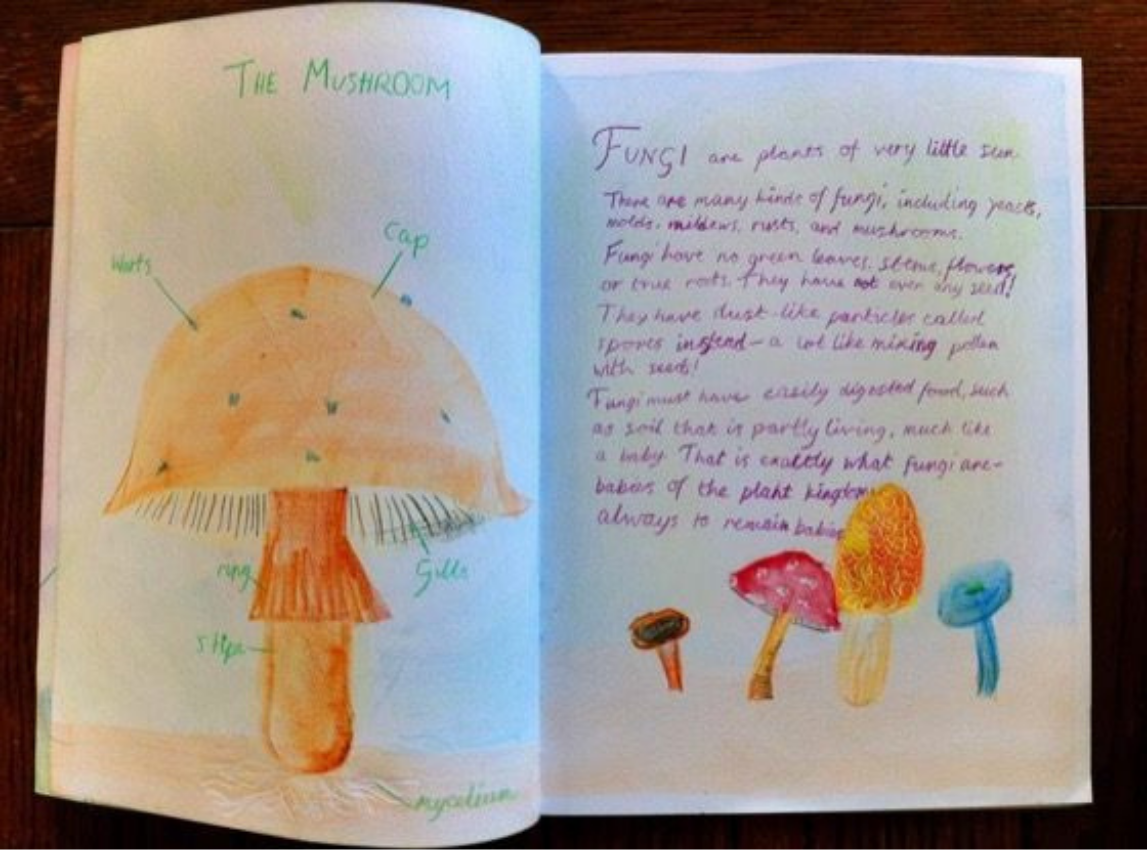 THE MUSHROOM
Cap
Warts
ring
Gills
stipe
mycelium
FUNGI are plants of very little sun
There are many kinds of fungi, including yeasts,
molds, mildews, rusts, and mushrooms.
Fungi have no green leaves, stems, flowers,
or true roots. They have not even any seed!
They have dust-like particles called
spores instead - a lot like mixing pollen
with seeds!
Fungi must have easily digested food, such
as soil that is partly living, much like
a baby. That is exactly what fungi are-
babies of the plant kingdom
always to remain babies